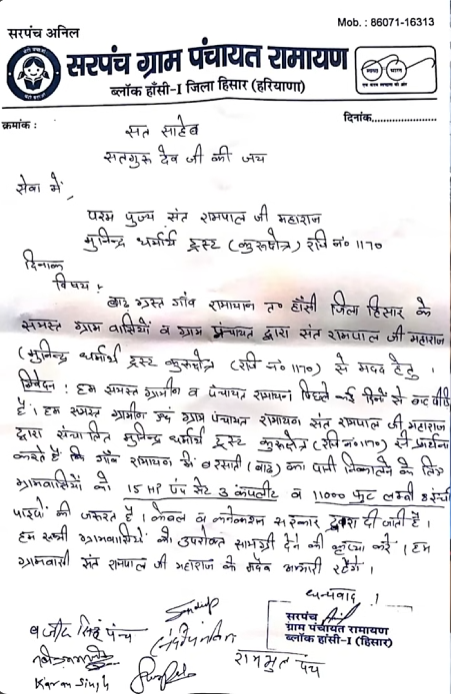 Mob. : 86071-16313
सरपंच अनिल
सरपंच ग्राम पंचायत रामायण
ब्लॉक हाँसी-I जिला हिसार (हरियाणा)
क्रमांक :
दिनांक......................
सत साहेब
सतगुरु देव जी की जय
सेवा में,
परम पुज्य संत रामपाल जी महाराज
मुनिन्द्र धर्मार्थ ट्रस्ट (कुरुक्षेत्र) रजि नं० 1170
दिनांक
विषय :
बाढ़ ग्रस्त गाँव रामायण त० हाँसी जिला हिसार के
समस्त ग्राम वासियों व ग्राम पंचायत द्वारा संत रामपाल जी महाराज
(मुनिन्द्र धर्मार्थ ट्रस्ट कुरुक्षेत्र (रजि नं० 1170) से मदद हेतु ।
निवेदन : हम समस्त ग्रामीण व पंचायत रामायण पिछले कई दिनों से बाढ़ पीड़ित
है । हम समस्त ग्रामीण एवं ग्राम पंचायत रामायण संत रामपाल जी महाराज
द्वारा संचालित मुनिन्द्र धर्मार्थ ट्रस्ट कुरुक्षेत्र (रजि नं० 1170) से प्रार्थना
करते हैं कि गाँव रामायण में बरसाती (बाढ़) का पानी निकालने के लिए
ग्रामवासियों को 15 HP पंप सेट 3 कंपलीट व 11000 फुट लम्बी 8 इंची
पाइपों की जरूरत है । केबल व कनेक्शन सरकार द्वारा दी जाती है ।
हम सभी ग्रामवासियों को उपरोक्त सामग्री देने की कृप्या करें । हम
ग्रामवासी संत रामपाल जी महाराज के सदैव आभारी रहेंगे ।
धन्यवाद !
सरपंच
ग्राम पंचायत रामायण
ब्लॉक हाँसी-I (हिसार)
Sandeep
सिंह पंच
Karan Singh
पंच